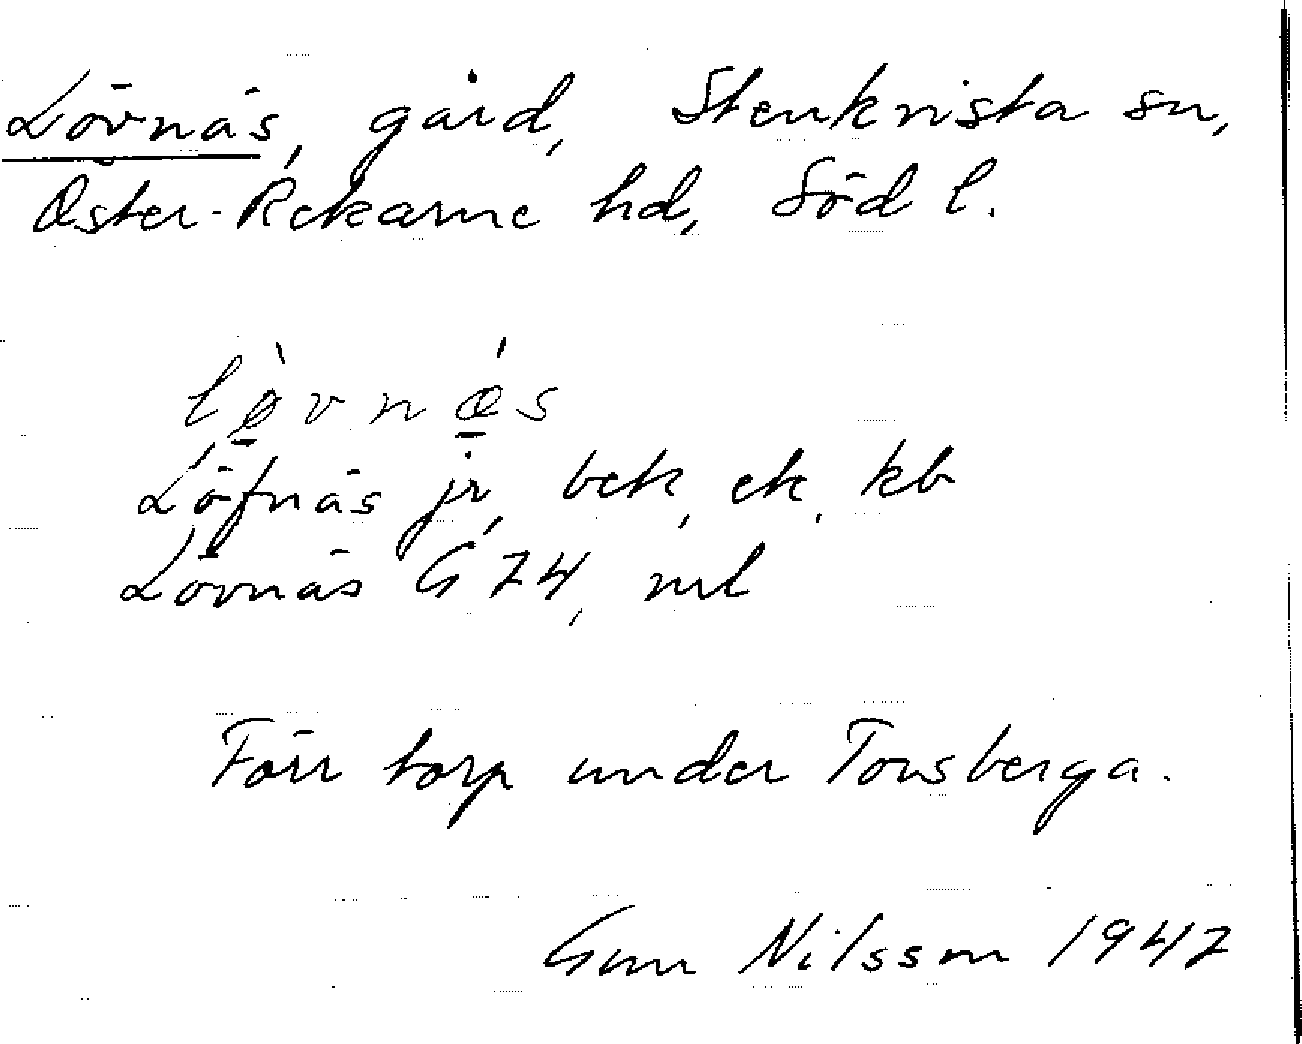 Lövnäs, gård, Stenkvista sn,
Öster-Rekarne hd, Söd l.
lø̀vnǽs
Löfnäs jr, bek, ek, kb
Lövnäs G 74, ml
Förr torp under Torsberga.
Gun Nilsson 1947